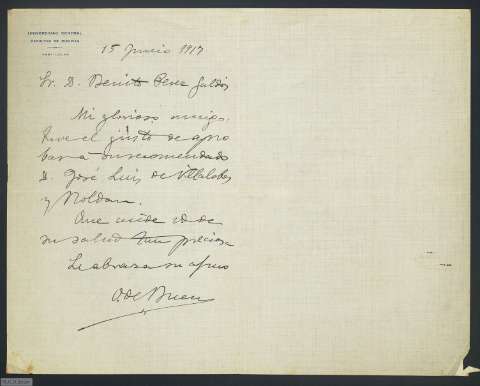 UNIVERSIDAD CENTRAL
FACULTAD DE CIENCIAS
15 Junio 1917
Sr. D. Benito Perez Galdós
Mi glorioso amigo:
Tuve el gusto de apro
bar á su recomendado
D. José Luis de Villalobos
y Roldan.
Que cuide V. de
su salud tan preciosa
Le abraza su afmo
O. de Buen